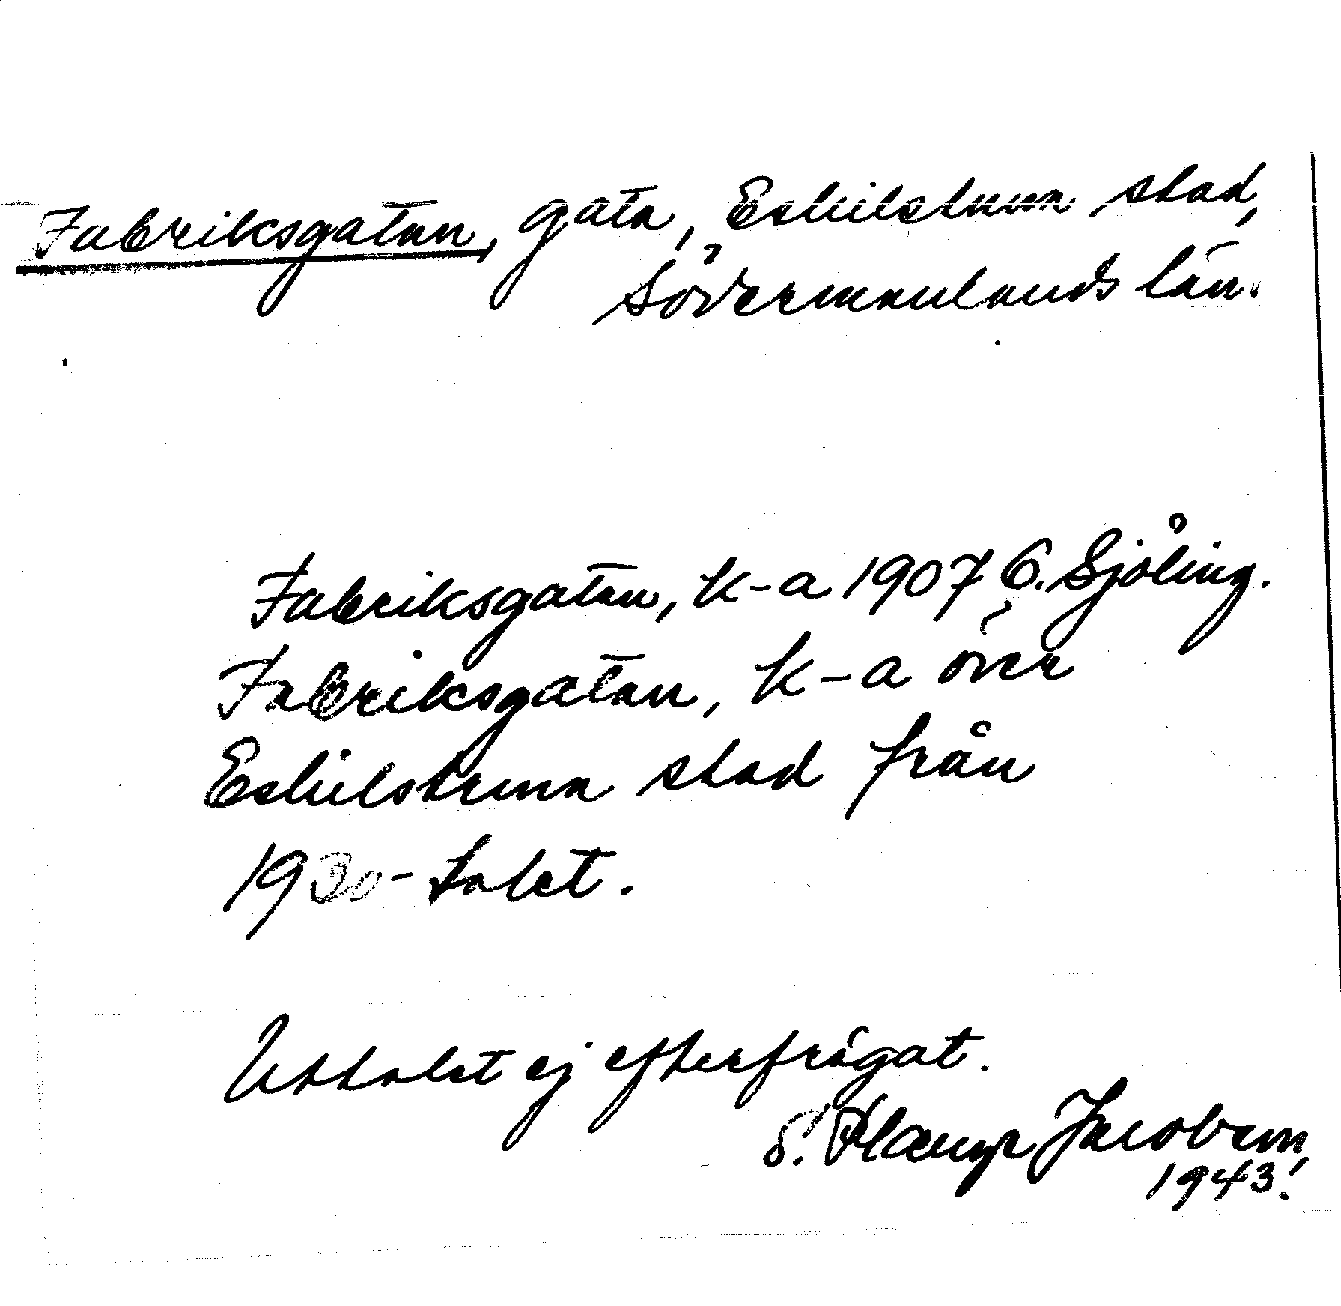 Fabriksgatan, gata, Eskilstuna stad,
Södermanlands län.
Fabriksgatan, K-a 1907 G. Sjöling.
Fabriksgatan, K-a över
Eskilstuna stad från
1930-talet.
Uttalet ej efterfrågat.
S. Jacobsson,
1943.